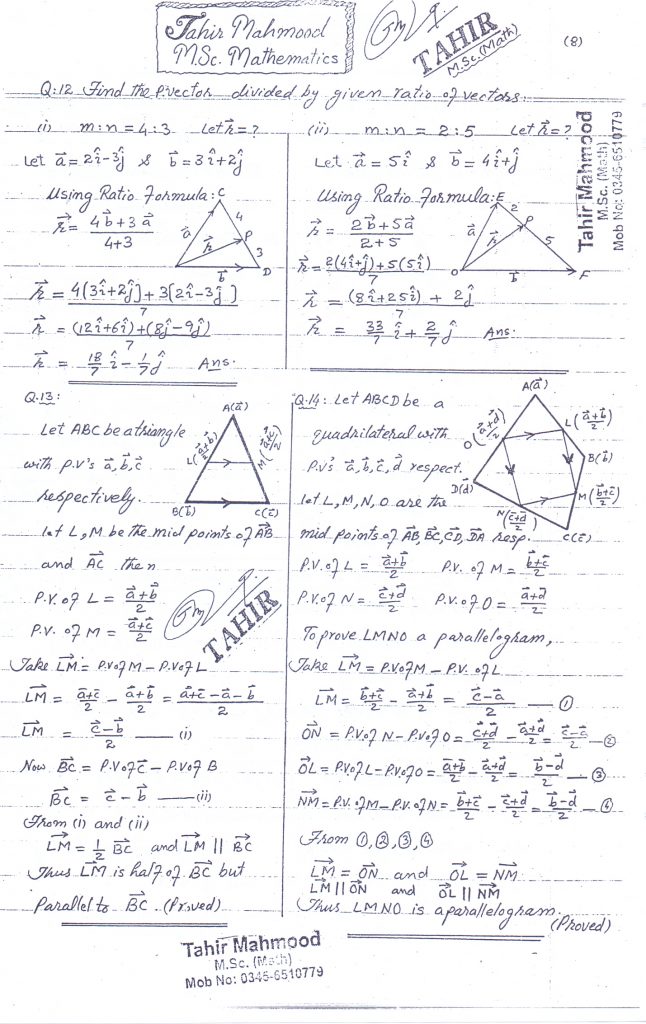 Tahir Mahmood
MSc. Mathematics
TAHIR
M.Sc. (Math)
(8)
Q:12 Find the P.vector divided by given ratio of vectors.
(i) m:n = 4:3 Let r⃗ = ?
Let a⃗ = 2î-3ĵ & b⃗ = 3î+2ĵ
Using Ratio Formula:
r⃗ = (4b⃗+3a⃗)/(4+3)
C
4
P
3
D
a⃗
r⃗
b⃗
r⃗ = (4[3î+2ĵ]+3[2î-3ĵ])/7
r⃗ = ((12î+6î)+(8ĵ-9ĵ))/7
r⃗ = 18/7 î - 1/7 ĵ Ans.
(ii) m:n = 2:5 Let r⃗ = ?
Let a⃗ = 5î & b⃗ = 4î+ĵ
Using Ratio Formula:
r⃗ = (2b⃗+5a⃗)/(2+5)
E
2
P
5
a⃗
r⃗
O
b⃗
F
r⃗ = (2(4î+ĵ)+5(5î))/7
r⃗ = ((8î+25î) + 2ĵ)/7
r⃗ = 33/7 î + 2/7 ĵ Ans.
Tahir Mahmood
M.Sc. (Math)
Mob No: 0345-6510779
Q.13:
Let ABC be a triangle
with p.v's a⃗, b⃗, c⃗
respectively.
A(a⃗)
L((a⃗+b⃗)/2)
M((a⃗+c⃗)/2)
B(b⃗)
C(c⃗)
let L, M be the mid points of AB⃗
and AC⃗ then
P.V. of L = (a⃗+b⃗)/2
P.V. of M = (a⃗+c⃗)/2
TAHIR
Take LM⃗ = P.V of M - P.V of L
LM⃗ = (a⃗+c⃗)/2 - (a⃗+b⃗)/2 = (a⃗+c⃗-a⃗-b⃗)/2
LM⃗ = (c⃗-b⃗)/2 —— (i)
Now BC⃗ = P.V of C⃗ - P.V of B
BC⃗ = c⃗ - b⃗ —— (ii)
From (i) and (ii)
LM⃗ = 1/2 BC⃗ and LM⃗ || BC⃗
Thus LM⃗ is half of BC⃗ but
Parallel to BC⃗. (Proved)
Q.14: Let ABCD be a
quadrilateral with
P.v's a⃗, b⃗, c⃗, d⃗ respect.
let L, M, N, O are the
A(a⃗)
O((a⃗+d⃗)/2)
L((a⃗+b⃗)/2)
B(b⃗)
D(d⃗)
M((b⃗+c⃗)/2)
N((c⃗+d⃗)/2)
C(c⃗)
mid points of AB⃗, BC⃗, CD⃗, DA⃗ resp.
P.V. of L = (a⃗+b⃗)/2 P.V. of M = (b⃗+c⃗)/2
P.V. of N = (c⃗+d⃗)/2 P.V. of O = (a⃗+d⃗)/2
To prove LMNO a parallelogram,
Take LM⃗ = P.V of M - P.V. of L
LM⃗ = (b⃗+c⃗)/2 - (a⃗+b⃗)/2 = (c⃗-a⃗)/2 —— ①
ON⃗ = P.V of N - P.V of O = (c⃗+d⃗)/2 - (a⃗+d⃗)/2 = (c⃗-a⃗)/2 —②
OL⃗ = P.V of L - P.V of O = (a⃗+b⃗)/2 - (a⃗+d⃗)/2 = (b⃗-d⃗)/2 —③
NM⃗ = P.V. of M - P.V. of N = (b⃗+c⃗)/2 - (c⃗+d⃗)/2 = (b⃗-d⃗)/2 —④
From ①, ②, ③, ④
LM⃗ = ON⃗ and OL⃗ = NM⃗
LM⃗ || ON⃗ and OL⃗ || NM⃗
Thus LMNO is a parallelogram.
(Proved)
Tahir Mahmood
M.Sc. (Math)
Mob No: 0345-6510779